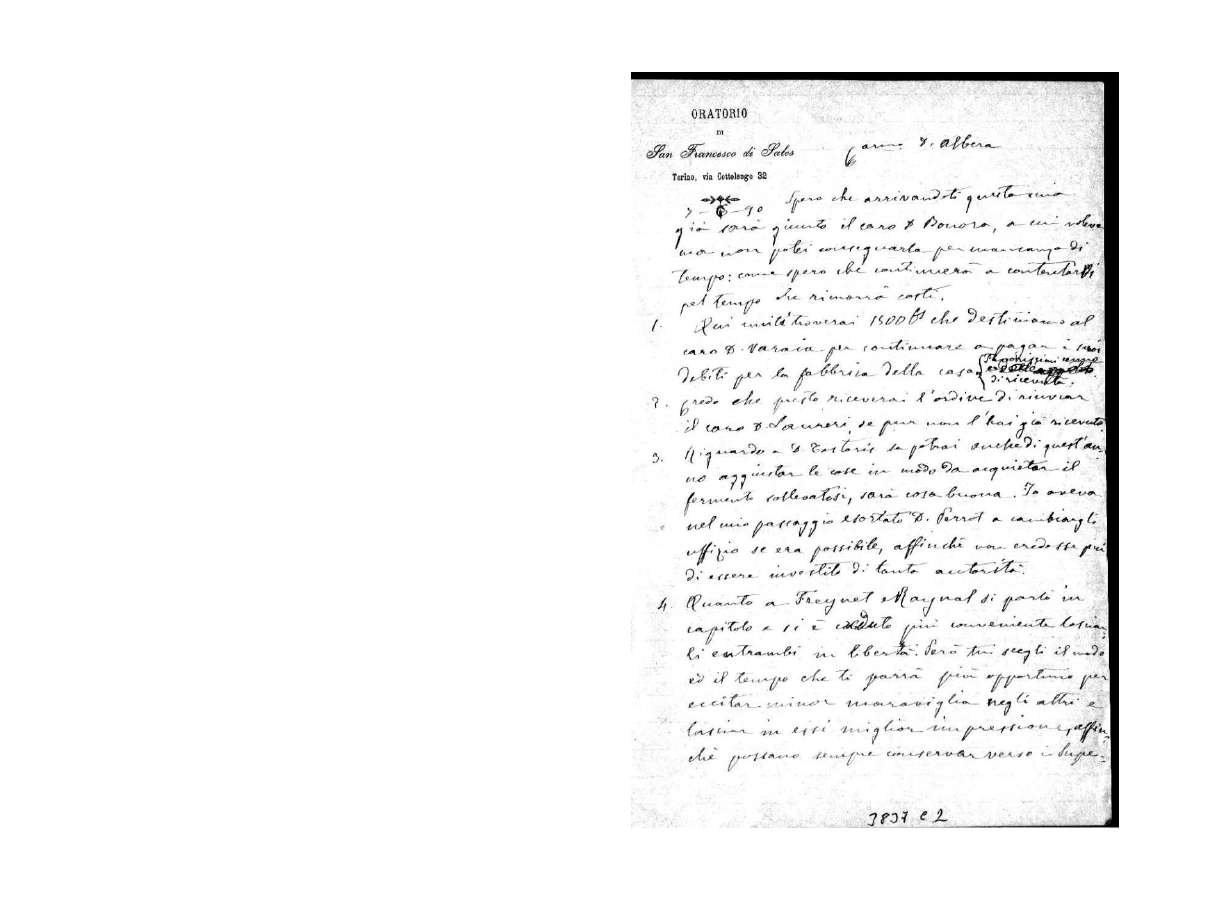 ORATORIO
DI
San Francesco di Sales
Torino, via Cottolengo 32
Car.mo D. Albera
7-6-90 Spero che arrivandoti questa mia
già sarà giunto il caro D. Bonora, a cui voleva
ma non potei consegnarla per mancanza di
tempo: come spero che continuerà a contentarvi
pel tempo che rimarrà costì.
1. Qui unita troverai 1500 che destiniamo al
caro D. Varaia per continuare a pagar i suoi
debiti per la fabbrica della casa
di ricevuta.
2. Credo che presto riceverai l'ordine di rinviar
il caro D. Laureri, se pur non l'hai già ricevuto
3. Riguardo a D. se potrai anche di quest'an-
no aggiustar le cose in modo da acquietar il
fermento sollevatosi, sarà cosa buona. Io aveva
nel mio passaggio esortato D. Perrot a cambiargli
uffizio se era possibile, affinchè non credesse più
di essere investito di tanta autorità.
4. Quanto a Freynet e Raynal si parlò in
capitolo e si è più conveniente lasciar-
li entrambi in libertà. Però tu scegli il modo
ed il tempo che ti parrà più opportuno per
eccitar minor maraviglia negli altri e
lasciar in essi miglior impressione, affin-
chè possano sempre conservar verso i Supe-
3837 C 2